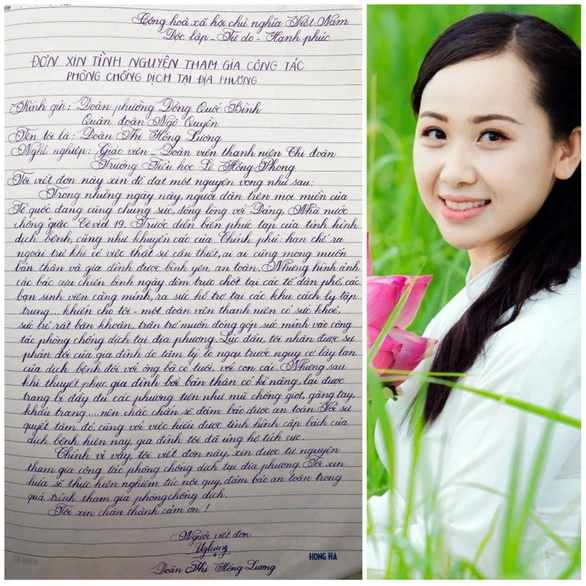 Cộng hoà xã hội chủ nghĩa Việt Nam
Độc lập - Tự do - Hạnh phúc
ĐƠN XIN TÌNH NGUYỆN THAM GIA CÔNG TÁC
PHÒNG CHỐNG DỊCH TẠI ĐỊA PHƯƠNG
Kính gửi: Đoàn phường Đông Quốc Bình
Quận đoàn Ngô Quyền
Tên tôi là: Đoàn Thị Hồng Lương
Nghề nghiệp: Giáo viên - Đoàn viên thanh niên Chi đoàn
Trường Tiểu học Lê Hồng Phong
Tôi viết đơn này xin đề đạt một nguyện vọng như sau:
Trong những ngày này, người dân trên mọi miền của
Tổ quốc đang cùng chung sức, đồng lòng với Đảng, Nhà nước
chống giặc Covid 19. Trước diễn biến phức tạp của tình hình
dịch bệnh, cũng như khuyến cáo của Chính phủ: hạn chế ra
ngoài trừ khi có việc thật sự cần thiết, ai ai cũng mong muốn
bản thân và gia đình được bình yên an toàn. Nhưng hình ảnh
các bác cựu chiến binh ngày đêm trực chốt tại các tổ dân phố, các
bạn sinh viên căng mình, ra sức hỗ trợ tại các khu cách ly tập
trung... khiến cho tôi - một đoàn viên thanh niên có sức khoẻ,
sức trẻ rất băn khoăn, trăn trở muốn đóng góp sức mình vào công
tác phòng chống dịch tại địa phương. Lúc đầu, tôi nhận được sự
phản đối của gia đình do tâm lý lo ngại trước nguy cơ lây lan
của dịch bệnh đối với ông bà có tuổi, với con cái. Nhưng sau
khi thuyết phục gia đình bởi bản thân có kĩ năng, lại được
trang bị đầy đủ các phương tiện như mũ chống giọt, găng tay,
khẩu trang... nên chắc chắn sẽ đảm bảo được an toàn. Với sự
quyết tâm đó, cùng với việc hiểu được tình hình cấp bách của
dịch bệnh hiện nay, gia đình tôi đã ủng hộ tích cực.
Chính vì vậy, tôi viết đơn này, xin được tự nguyện
tham gia công tác phòng chống dịch tại địa phương. Tôi xin
hứa sẽ thực hiện nghiêm túc nội quy, đảm bảo an toàn trong
quá trình tham gia phòng chống dịch.
Tôi xin chân thành cảm ơn!
Người viết đơn
Đoàn Thị Hồng Lương
HONG HA